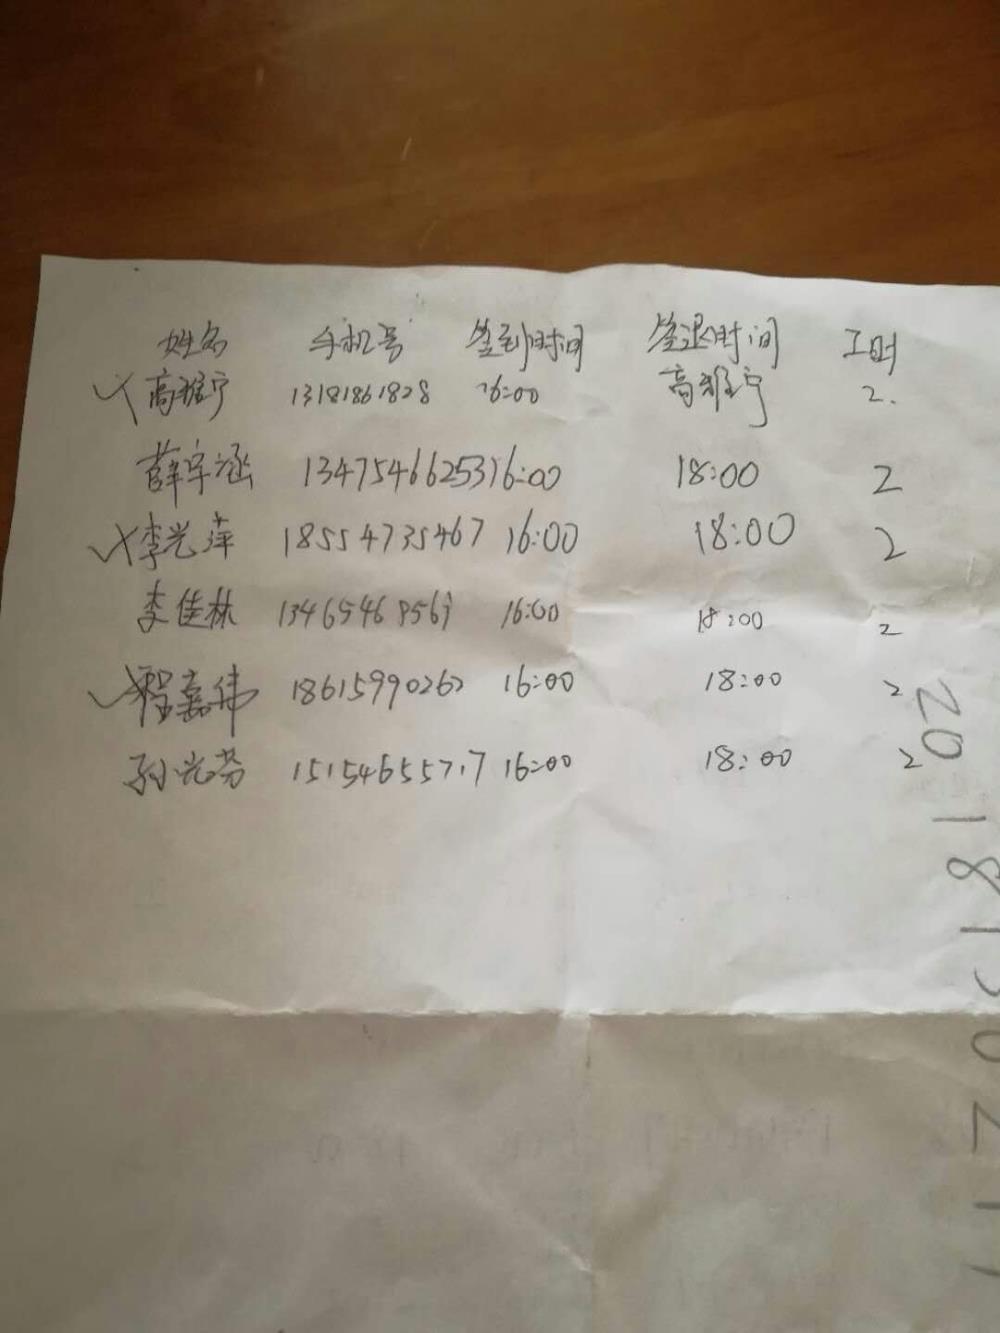 姓名 手机号 签到时间 签退时间 工时
高雅宁 13181861828 16:00 高雅宁 2.
薛宇涵 13475466253 16:00 18:00 2
李光萍 18554735467 16:00 18:00 2
李佳林 13465468569 16:00 18:00 2
程嘉伟 18615990262 16:00 18:00 2
孙光芬 15154655717 16:00 18:00 2
2018130211